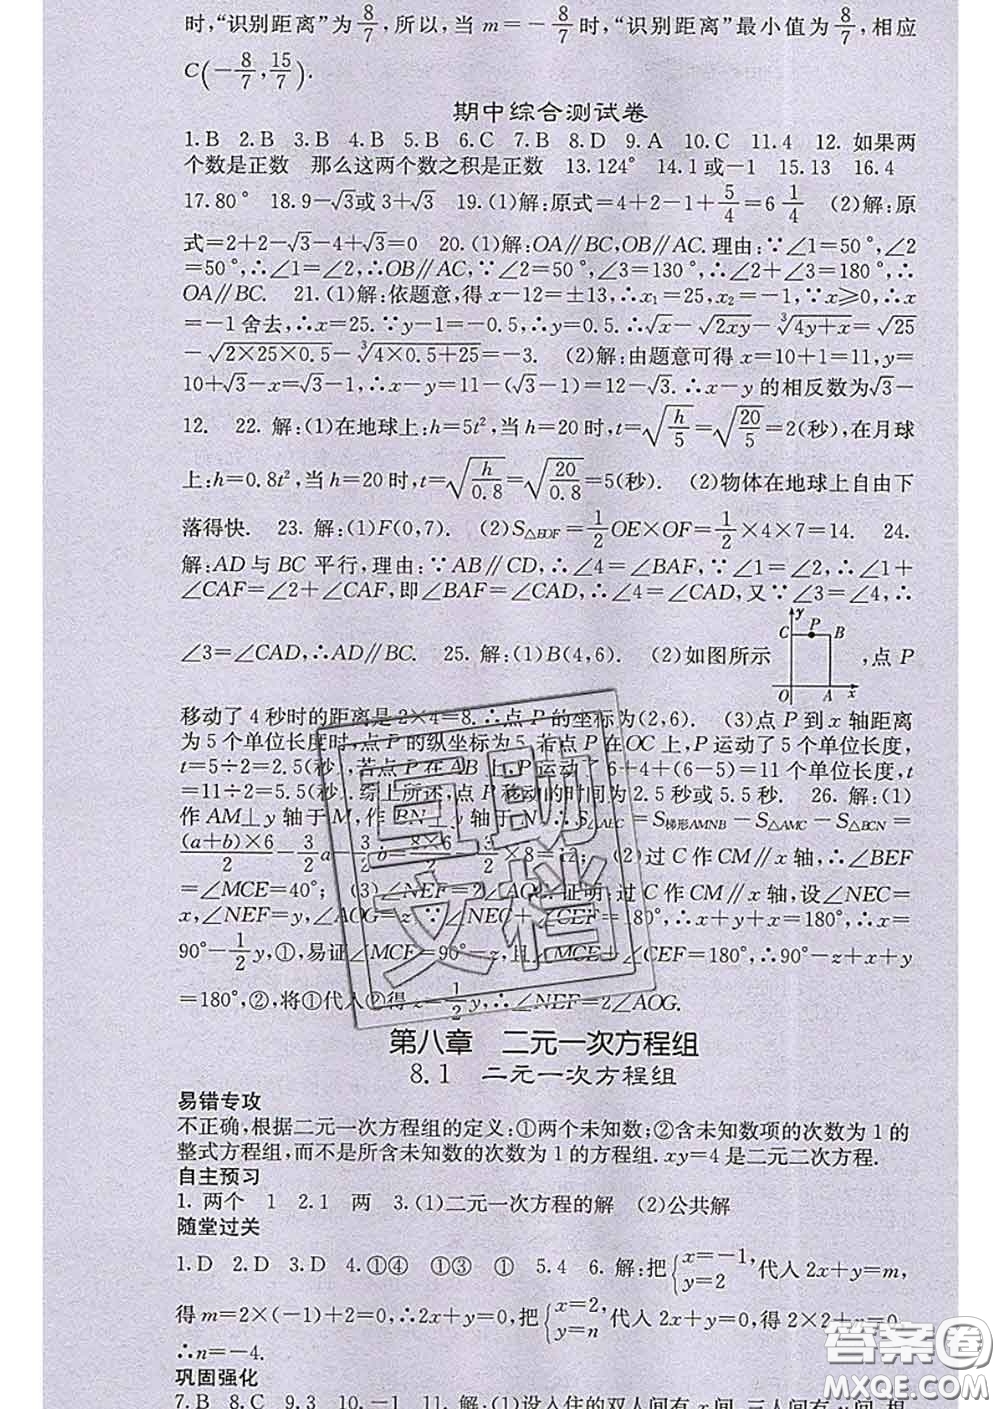 时,“识别距离”为8/7,所以,当m=-8/7时,“识别距离”最小值为8/7,相应
C(-8/7,15/7).
期中综合测试卷
1.B 2.B 3.B 4.B 5.B 6.C 7.B 8.D 9.A 10.C 11.4 12. 如果两
个数是正数 那么这两个数之积是正数 13.124° 14.1或-1 15.13 16.4
17.80° 18.9-√3或3+√3 19.(1)解:原式=4+2-1+5/4=6 1/4 (2)解:原
式=2+2-√3-4+√3=0 20.(1)解:OA∥BC,OB∥AC.理由:∵∠1=50°,∠2
=50°,∴∠1=∠2,∴OB∥AC,∵∠2=50°,∠3=130°,∴∠2+∠3=180°,∴
OA∥BC. 21.(1)解:依题意,得x-12=±13,∴x₁=25,x₂=-1,∵x≥0,∴x
=-1舍去,∴x=25.∵y-1=-0.5,∴y=0.5.∴√x-√2xy-∛4y+x=√25
-√2×25×0.5-∛4×0.5+25=-3. (2)解:由题意可得x=10+1=11,y=
10+√3-x=√3-1,∴x-y=11-(√3-1)=12-√3.∴x-y的相反数为√3-
12. 22. 解:(1)在地球上:h=5t²,当h=20时,t=√(h/5)=√(20/5)=2(秒),在月球
上:h=0.8t²,当h=20时,t=√(h/0.8)=√(20/0.8)=5(秒). (2)物体在地球上自由下
落得快. 23. 解:(1)F(0,7). (2)S△EOF=1/2OE×OF=1/2×4×7=14. 24.
解:AD与BC平行,理由:∵AB∥CD,∴∠4=∠BAF,∵∠1=∠2,∴∠1+
∠CAF=∠2+∠CAF,即∠BAF=∠CAD,∴∠4=∠CAD,又∵∠3=∠4,∴
∠3=∠CAD,∴AD∥BC. 25. 解:(1)B(4,6). (2)如图所示 y C P B O A x ,点P
移动了4秒时的距离是2×4=8.∴点P的坐标为(2,6). (3)点P到x轴距离
为5个单位长度时,点P的纵坐标为5,若点P在OC上,P运动了5个单位长度,
t=5÷2=2.5(秒),若点P在AB上,P运动了6+4+(6-5)=11个单位长度,
t=11÷2=5.5(秒).综上所述,点P移动的时间为2.5秒或5.5秒. 26. 解:(1)
作AM⊥y轴于M,作BN⊥y轴于N,∴S△ABC=S梯形AMNB-S△AMC-S△BCN=
(a+b)×6/2-3/2a-3/2b=8×6/2-3/2×8=12; (2)过C作CM∥x轴,∴∠BEF
=∠MCE=40°; (3)∠NEF=2∠AOG.证明:过C作CM∥x轴,设∠NEC=
x,∠NEF=y,∠AOG=z,∵∠NEC+∠CEF=180°,∴x+y+x=180°,∴x=
90°-1/2y,①,易证∠MCF=90°-z,且∠MCE+∠CEF=180°,∴90°-z+x+y
=180°,②,将①代入②得z=1/2y,∴∠NEF=2∠AOG.
第八章 二元一次方程组
8.1 二元一次方程组
易错专攻
不正确,根据二元一次方程组的定义:①两个未知数;②含未知数项的次数为1的
整式方程组,而不是所含未知数的次数为1的方程组.xy=4是二元二次方程.
自主预习
1. 两个 1 2.1 两 3.(1)二元一次方程的解 (2)公共解
随堂过关
1.D 2.D 3.D 4.①④ ①③ ① 5.4 6. 解:把{x=-1,y=2代入2x+y=m,
得m=2×(-1)+2=0,∴2x+y=0,把{x=2,y=n代入2x+y=0,得2×2+n=0,
∴n=-4.
巩固强化
7.B 8.C 9.3 10.-1 11. 解:(1)设入住的双人间有x间,三人间有y间,根
直助文档
答案圈
MXQE.COM